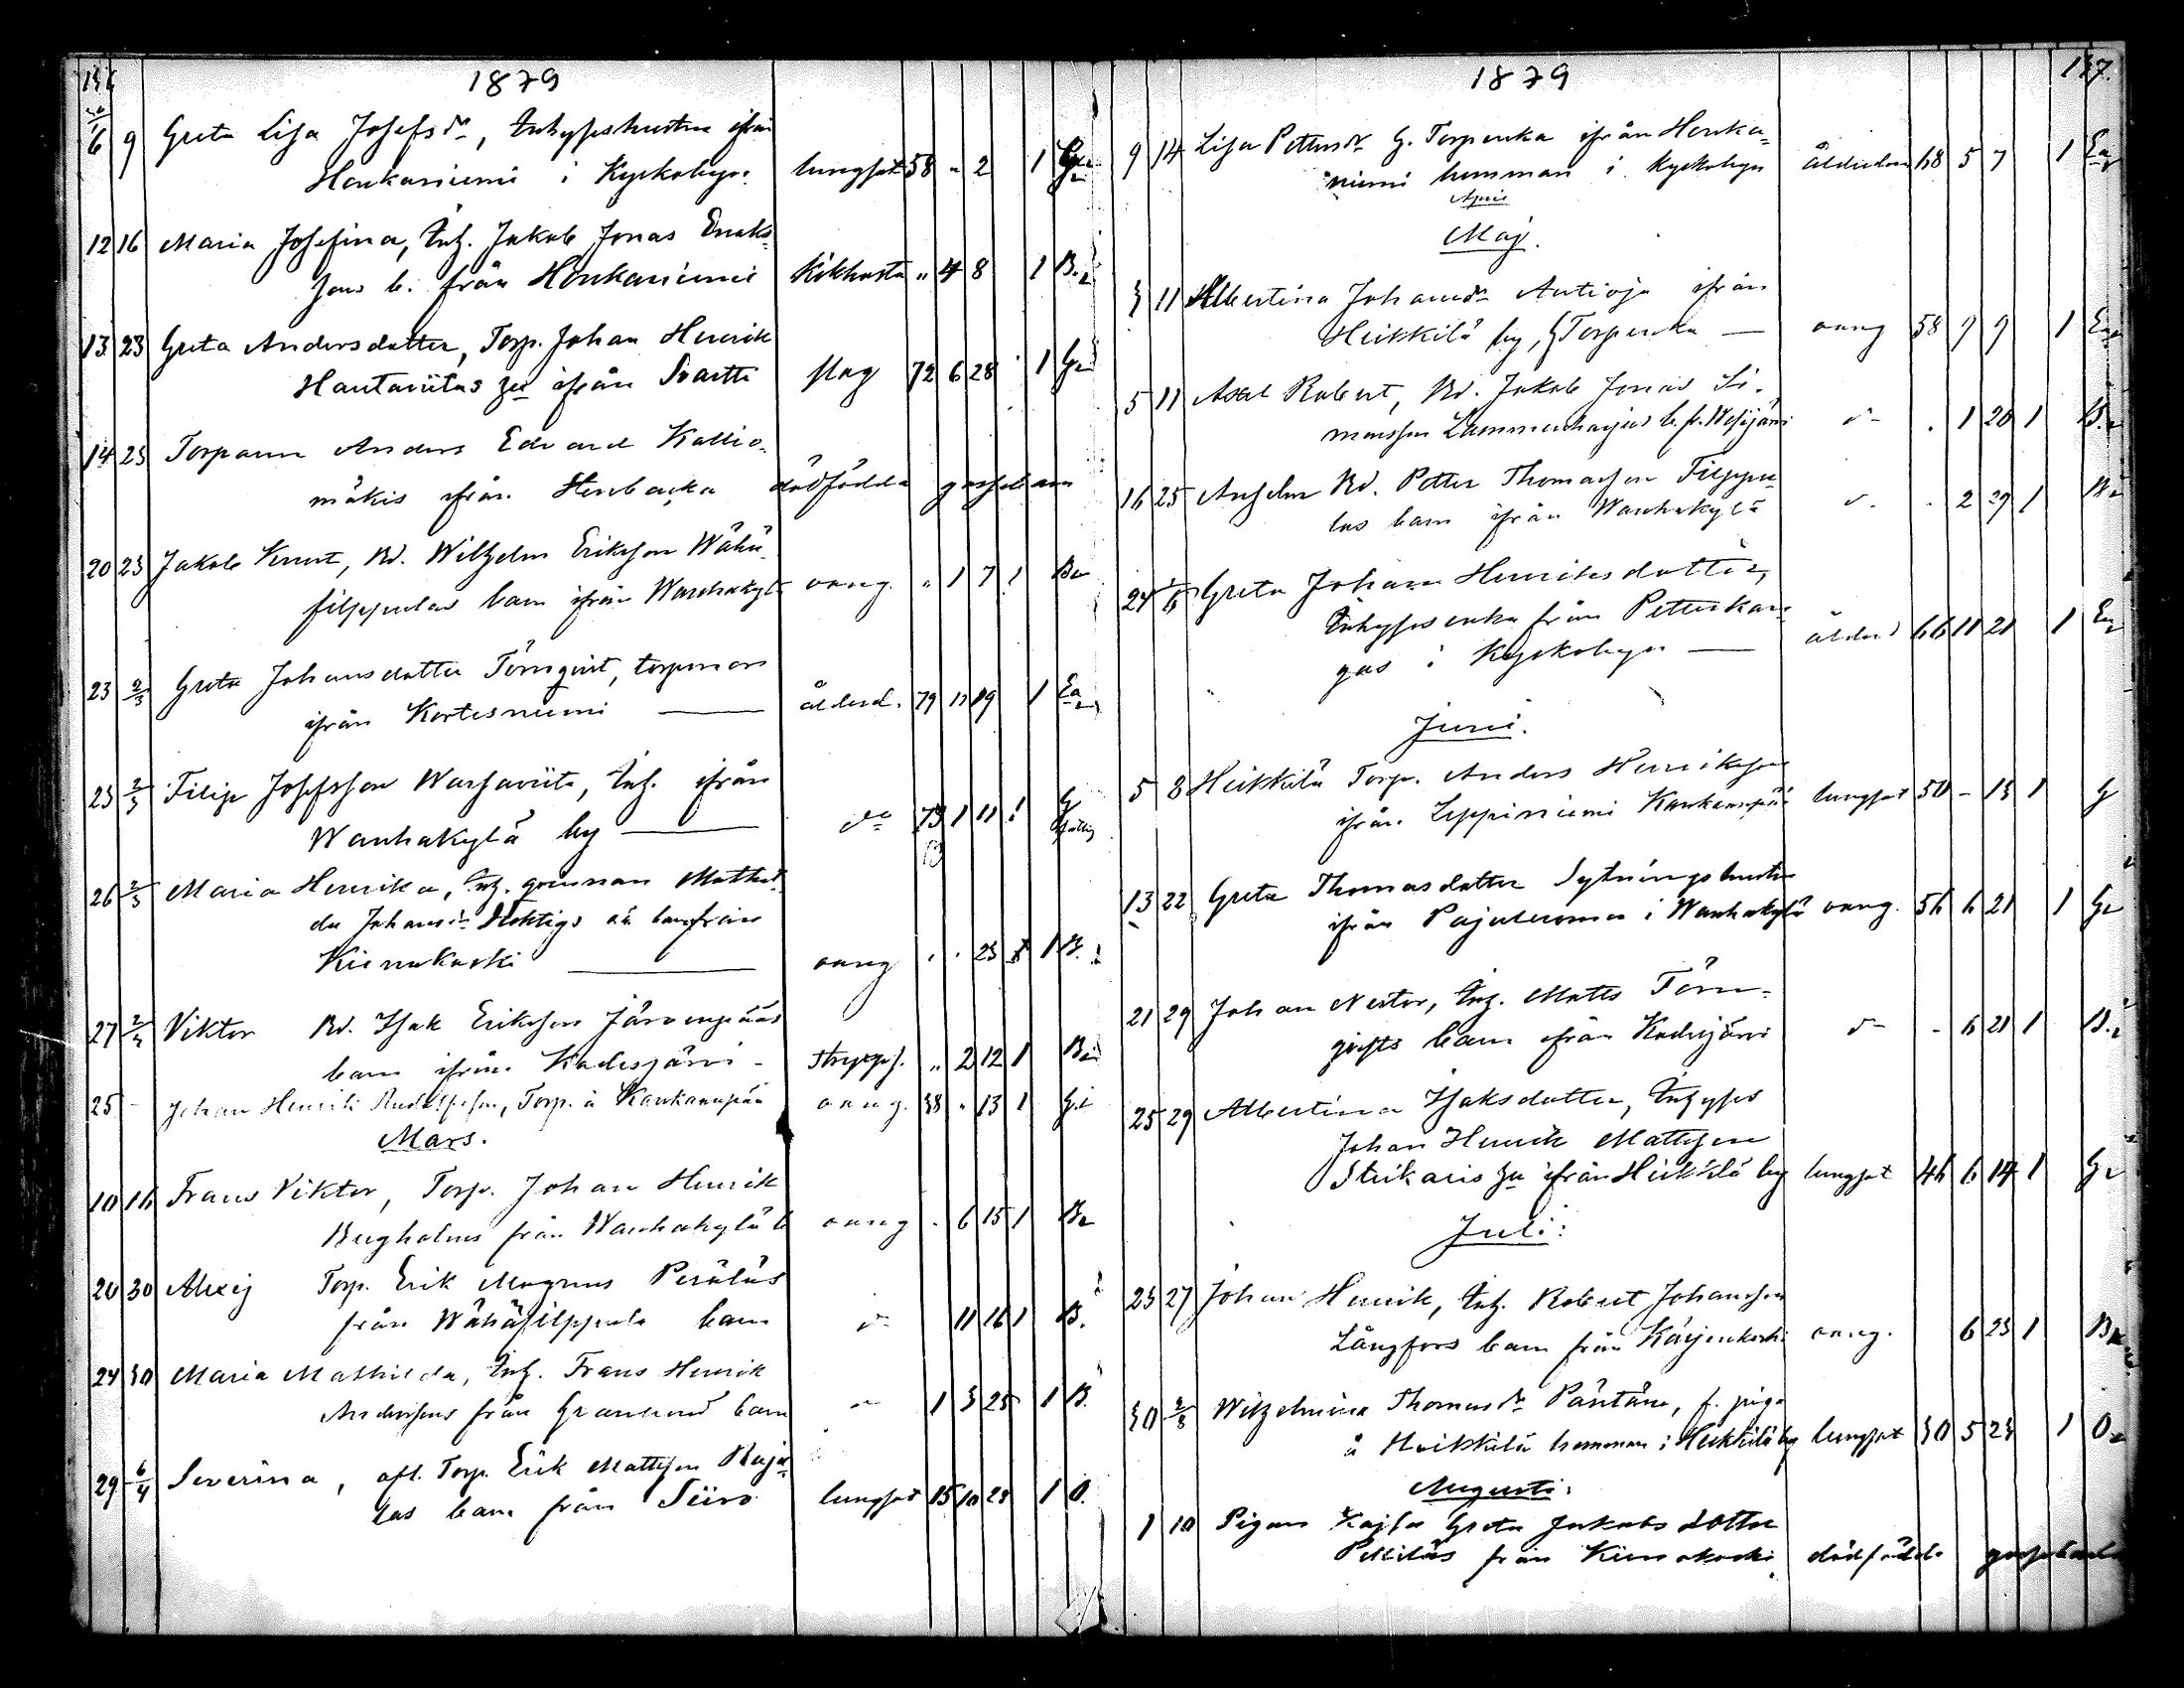 136
1879
6 9 Greta Lisa Josefsdr, Inhyseshustru ifrån
Honkaniemi i Kyrkobyn. lungsot 58 " 2 1 G
12 16 Maria Josefina, Inh. Jakob Jonas Enoks-
sons b. från Honkaniemi Kikhosta " 4 8 1 B.
13 23 Greta Andersdotter, Torp. Johan Henrik
Hautaviitas ifrån Svartti slag 72 6 28 1 G
14 23 Torparen Anders Edvard Kallio-
mäkis ifrån dödfödda gossebarn
20 23 Jakob Knut, Bd. Wilhelm Eriksson Wähä-
filppulas barn ifrån Wanhakylä oang. " 1 7 1 B
23 2/3 Greta Johansdotter Törnqvist, torpmor
ifrån Kortesniemi — ålderd. 79 11 19 1 Ea
23 2/3 Filip Josefsson Warsaviita, Inh. ifrån
Wanhakylä by — do 73 1 11 1 G
26 2/3 Maria Henrika, Inh. qvinnan Mathil-
da Johansdr oä barn från
Kiinakoski — oang " " 23 1 B.
27 2/3 Viktor Bd. Isak Eriksson Järvenpääs
barn ifrån Kadesjärvi - Strypsj. " 2 12 1 B
25 - Johan Henrik Rudolfsson, Torp. å Kankaanpää oang. 38 " 13 1 G
Mars.
10 16 Frans Viktor, Torp. Johan Henrik
Bergholms från Wanhakylä b oang - 6 15 1 B
20 30 Alexij Torp. Erik Magnus Peräläs
från Wähäfilppula barn do 11 16 1 B.
24 30 Maria Mathilda, Inh. Frans Henrik
Anderssons från Granlund barn do 1 3 25 1 B.
29 6/4 Severina, afl. Torp. Erik Mattsson Raja-
las barn från Siiro lungsot 15 10 28 1 O.
137.
1879
9 14 Lisa Pettersdr G. Torpenka ifrån Honka-
niemi hemman i kyrkobyn ålderdom 68 5 7 1 Ea
April
Maj.
3 11 Albertina Johansdr Antioja ifrån
Heikkilä by, G Torpenka — oang 58 9 9 1 Ea
5 11 Axel Robert, Bd. Jakob Jonas Si-
monsson Lammenharjus b. fr. Wesijärvi do . 1 20 1 B.
16 25 Anselm Bd. Petter Thomasson Filppu-
las barn ifrån Wanhakylä do - 2 29 1 B
24 1/6 Greta Johanna Henriksdotter,
Inhysesenka från Petterskan-
gas i Kyrkobyn — ålderd 66 11 21 1 Ea
Juni.
5 8 Heikkilä Torp. Anders Henriksson
ifrån Leppiniemi Kankaanpää lungsot 50 - 13 1 G
13 22 Greta Thomasdotter Sytningshustru
ifrån Pajuluoma i Wanhakylä oang. 56 6 21 1 G
21 29 Johan Nestor, Inh. Matts Törn-
qvists barn ifrån Kadesjärvi do - 6 21 1 B.
25 29 Albertina Isaksdotter, Inhyses
Johan Henrik Mattsson
ifrån Heikkilä by lungsot 46 6 14 1 G
Juli:
23 27 Johan Henrik, Inh. Robert Johansson
Långfors barn från Karjenkoski oang. 6 23 1 B
30 3/8 Wilhelmina Thomasdr Päntäne, f. piga
å Heikkilä hemman i Heikkilä by lungsot 30 5 23 1 O
Augusti.
1 10 Pigan Kajsa Greta Jakobsdotter
från Kiinakoski dödfödde gossebarn